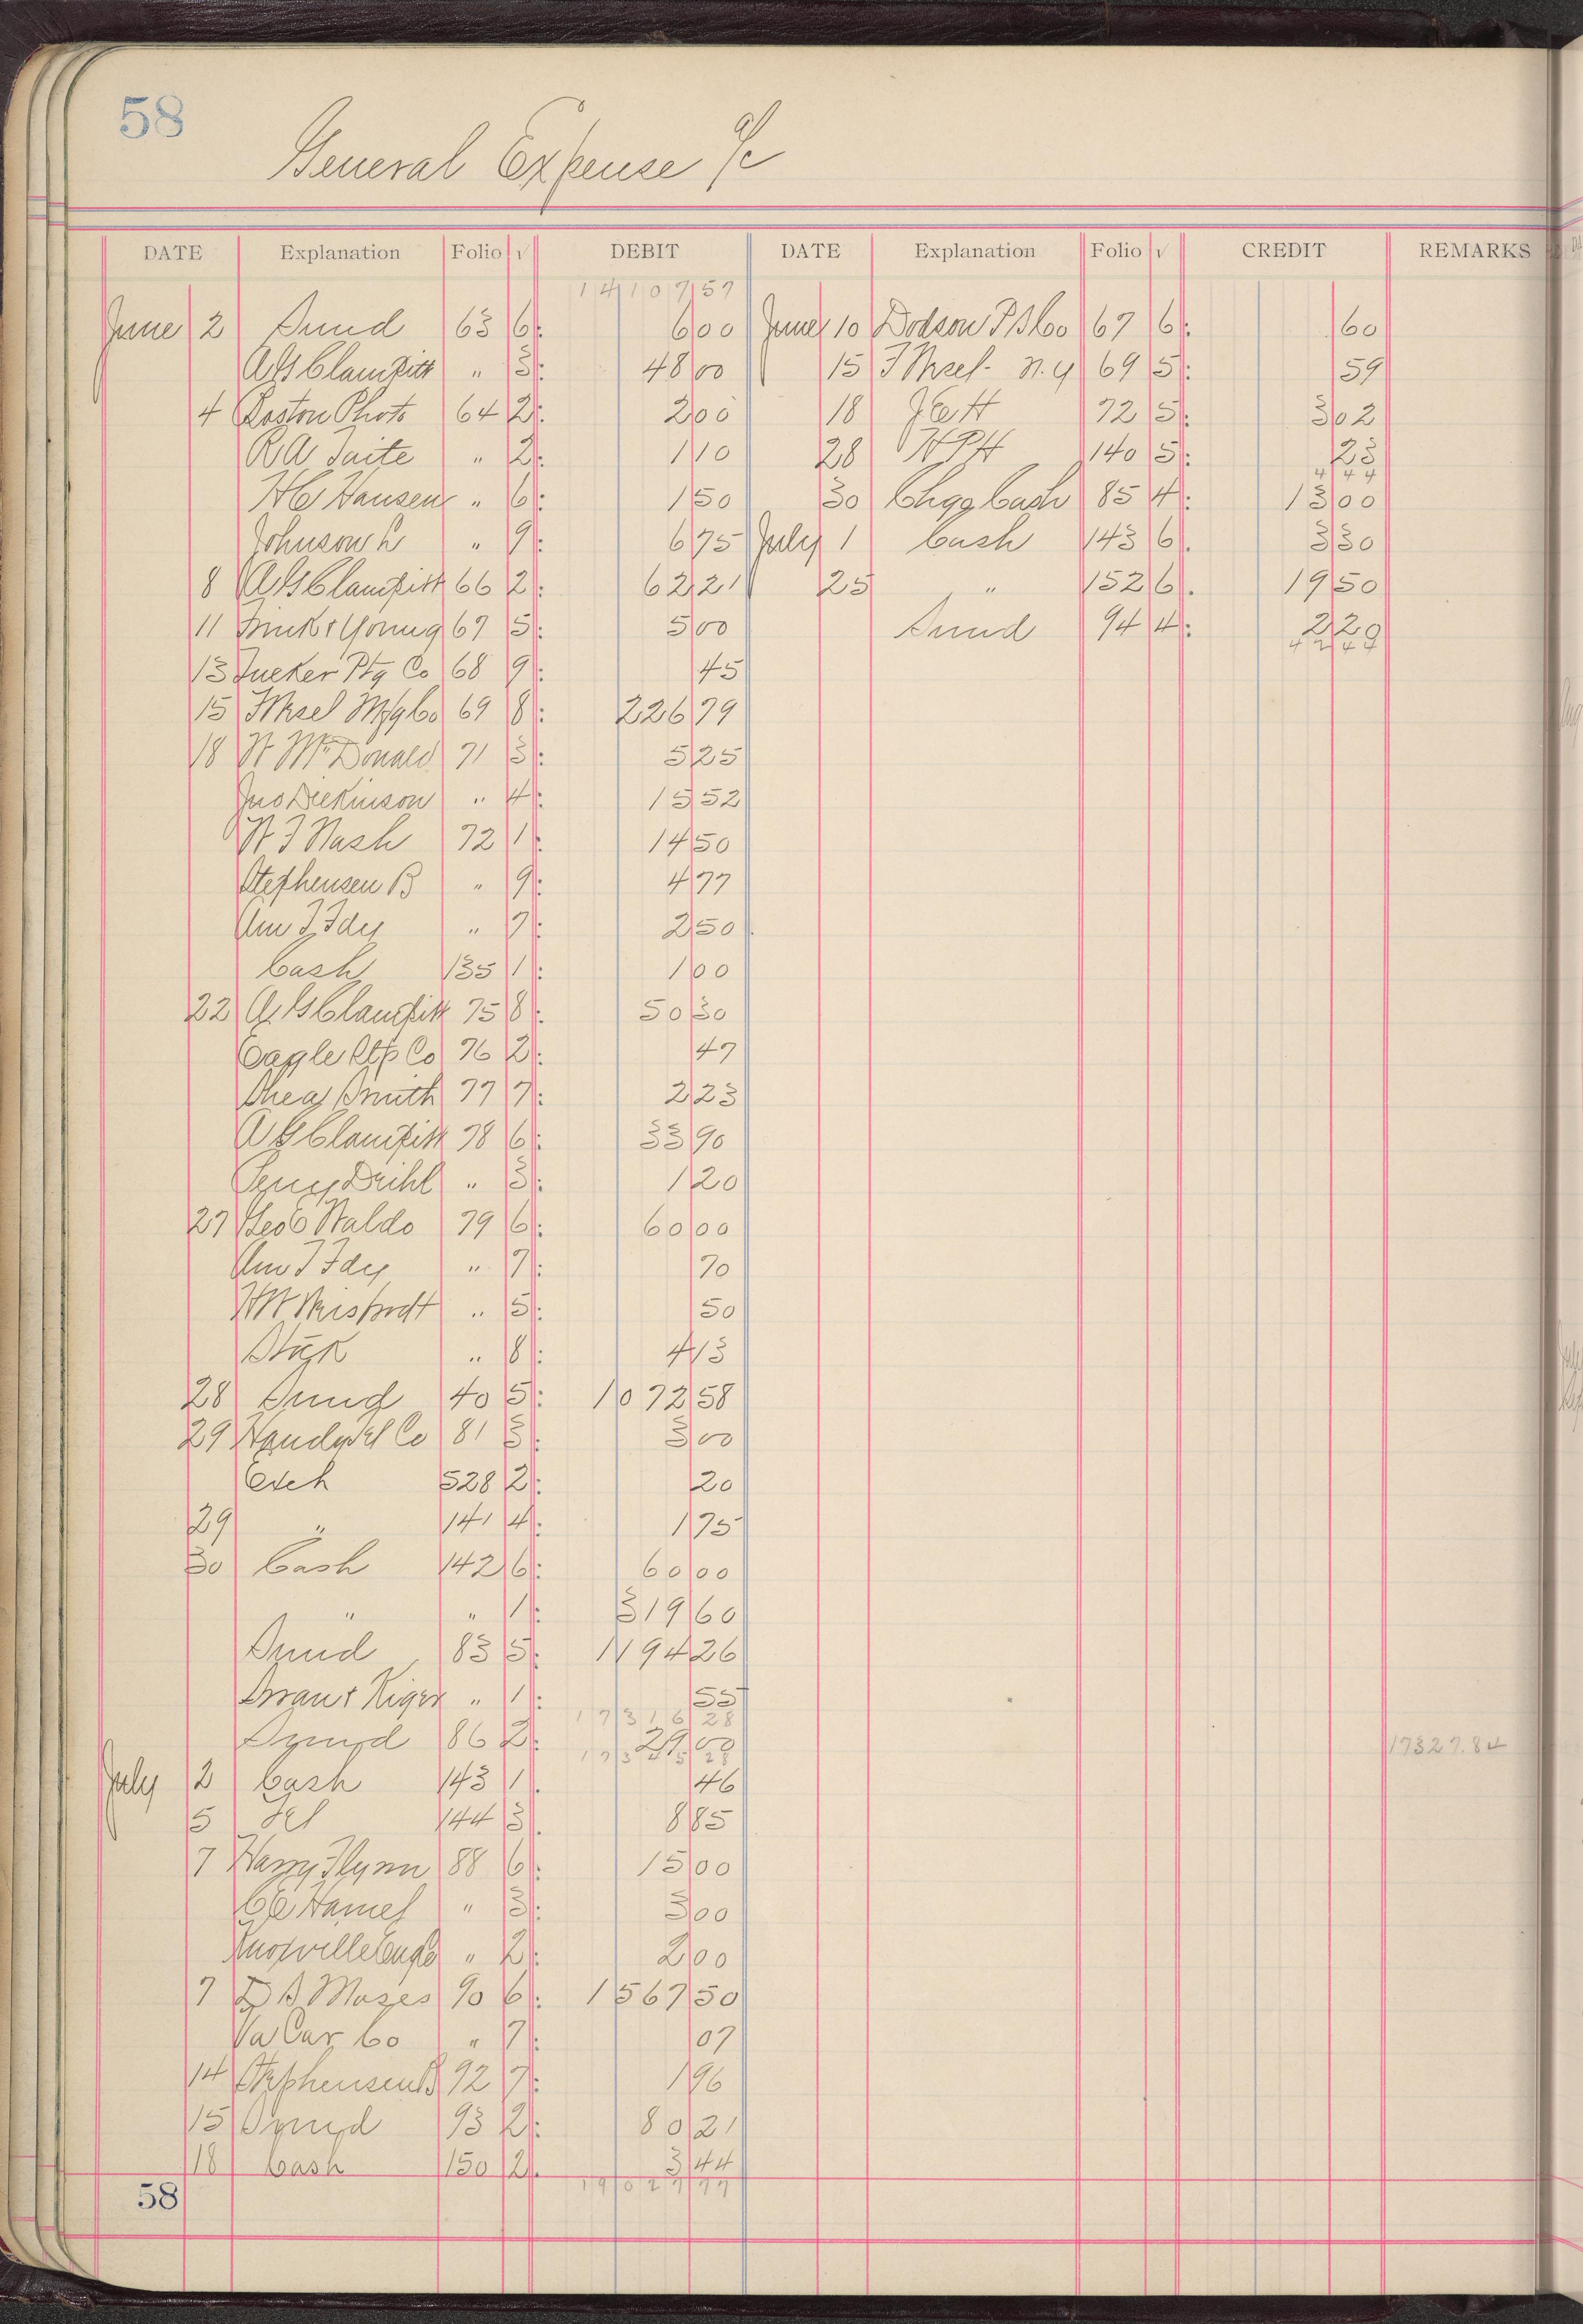 58
General Expense a/c
DATE Explanation Folio √ DEBIT DATE Explanation Folio √ CREDIT REMARKS
14107 57
June 2 Sund 63 6 6 00 June 10 Dodson P S Co 67 6 60
A G Clampitt " 3 48 00 15 69 5 59
4 Boston Photo 64 2 2 00 18 72 5 3 02
R A Taite " 2 1 10 28 H P H 140 5 23
4 44
H C Hansen " 6 1 50 30 Chgo Cash 85 4 13 00
Johnson L " 9 6 75 July 1 Cash 143 6 3 30
8 A G Clampitt 66 2 62 21 25 " 152 6 19 50
11 Frink & Young 67 5 5 00 Sund 94 4 2 29
42 44
13 Tucker Ptg Co 68 9 45
15 Mfg Co 69 8 226 79
18 W McDonald 71 3 5 25
Jno Dickinson " 4 15 52
W F Nash 72 1 14 50
Stephensen B " 9 4 77
Am T Fdy " 7 2 50
Cash 135 1 1 00
22 A G Clampitt 75 8 50 30
Eagle Co 76 2 47
Shea Smith 77 7 2 23
A G Clampitt 78 6 33 90
" 3 1 20
27 Geo E Waldo 79 6 60 00
Am T Fdy " 7 70
" 5 50
" 8 4 13
28 Sund 40 5 1072 58
29 Co 81 3 3 00
Exch 528 2 20
29 " 141 4 1 75
30 Cash 142 6 60 00
" " 1 319 60
Sund 83 5 1194 26
Kiger " 1 55
17316 28
Sund 86 2 29 00
17345 28 17327.84
July 2 Cash 143 1 46
5 Tel 144 3 8 85
7 Harry Flynn 88 6 15 00
C E Hamel " 3 3 00
Knoxville Eng Co " 2 2 00
7 Moses 90 6 1567 50
Va Car Co " 7 07
14 Stephensen B 92 7 1 96
15 Sund 93 2 80 21
18 Cash 150 2 3 44
19027 77
58